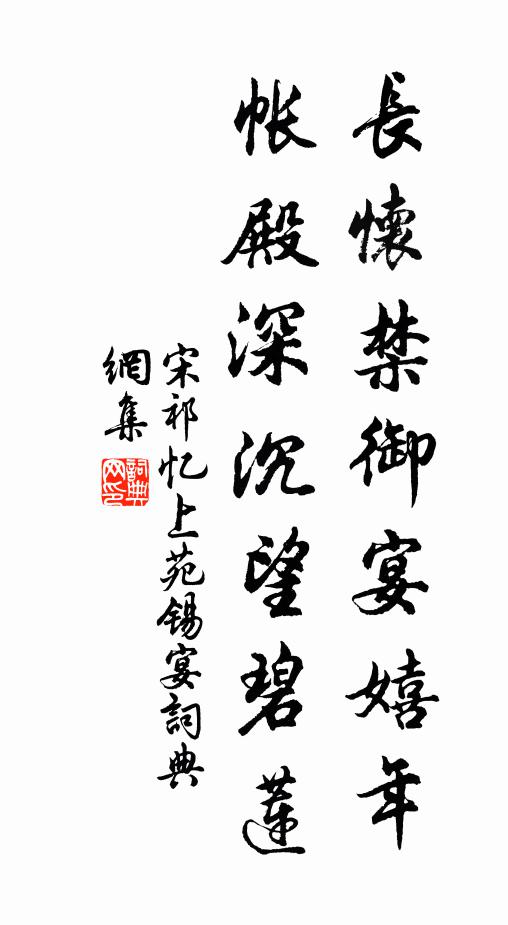 長懷禁御宴嬉年
帳殿深沉望碧蓮
宋祁忆上苑锡宴詞典
網集
詞典
网印